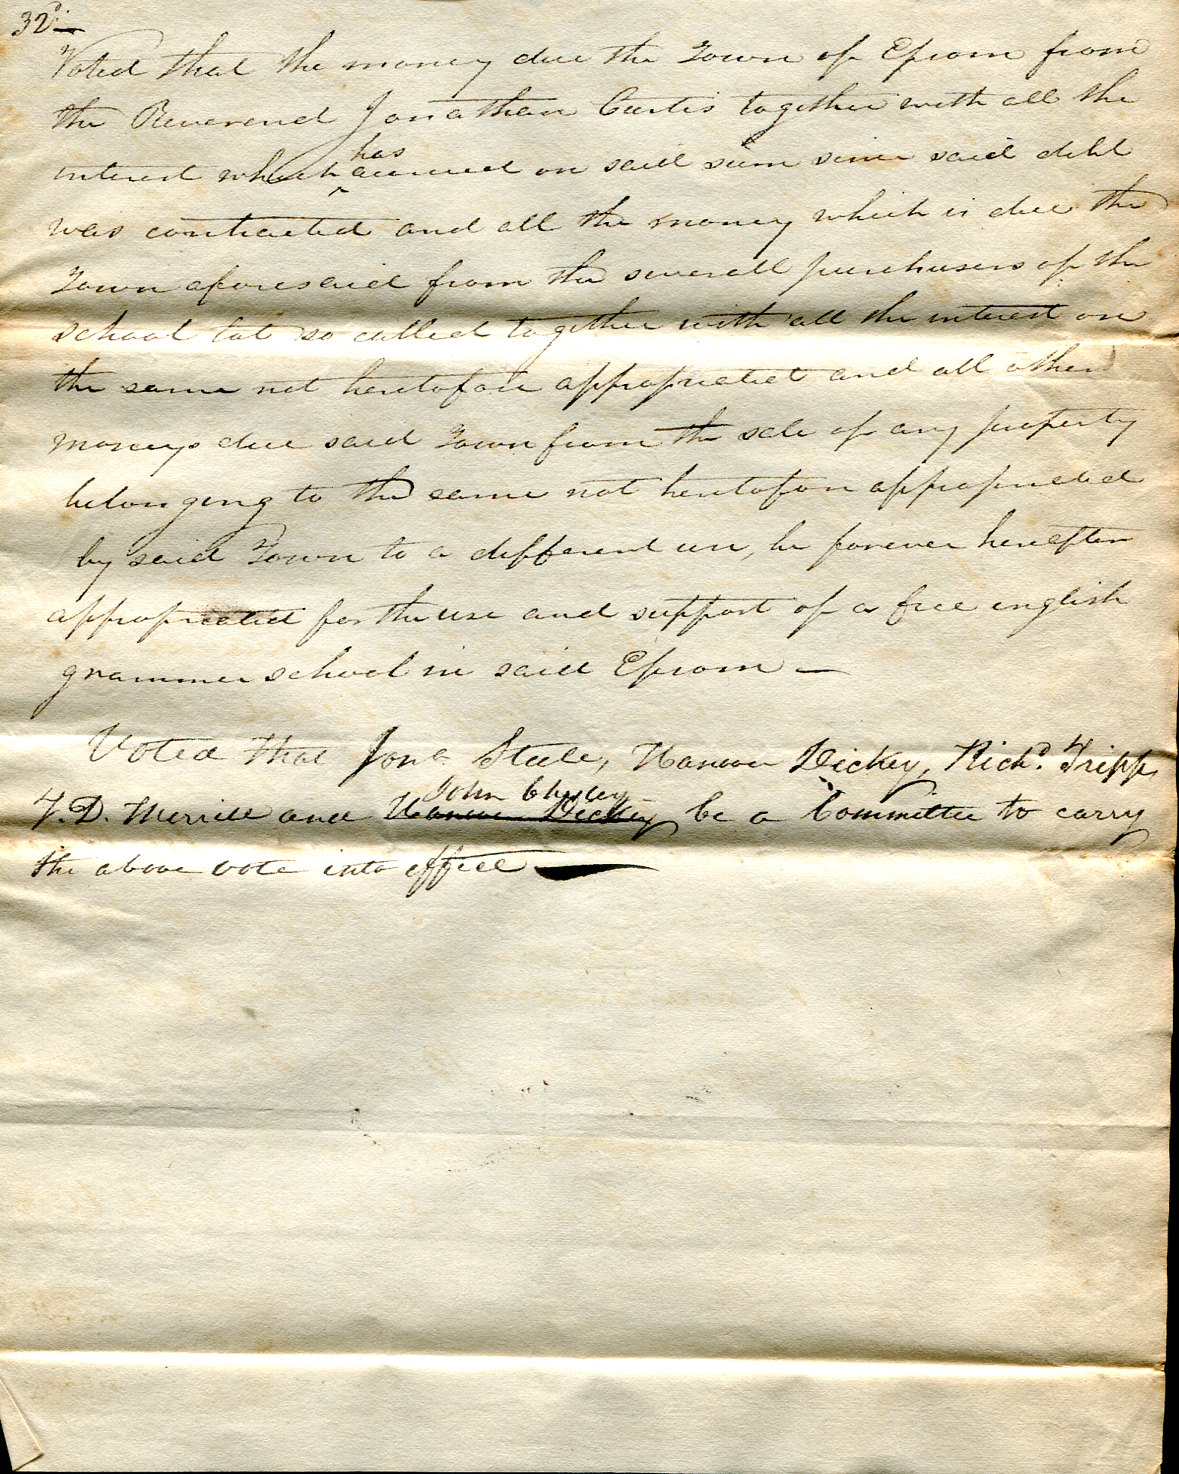 32d
Voted that the money due the Town of Epsom from
the Reverend Jonathan Curtis together with all the
interest which has accrued on said sum since said debt
was contracted and all the money which is due the
Town aforesaid from the severall purchasers of the
school lot so called together with all the interest on
the same not heretofore appropriated and all other
moneys due said Town from the sale of any property
belonging to the same not heretofore appropriated
by said Town to a different use, be forever hereafter
appropriated for the use and support of a free english
grammer school in said Epsom —
Voted that Jona Steele, Hanover Dickey, Richd. Tripp,
T. D. Merrill and Hanover Dickey John Chesley be a Committee to carry
the above vote into effect —